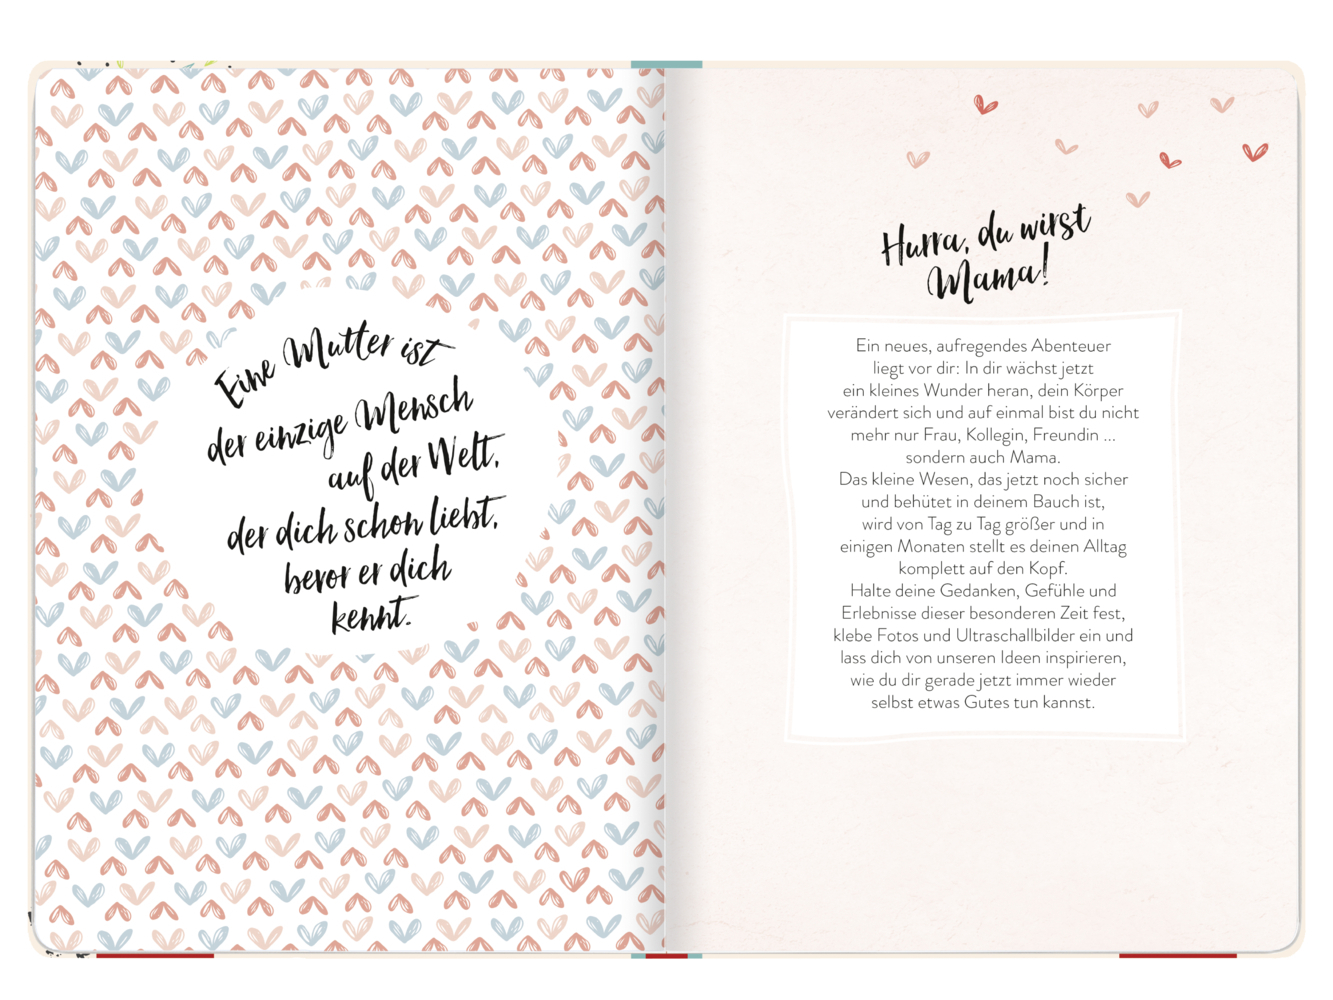 Eine Mutter ist
der einzige Mensch
auf der Welt,
der dich schon liebt,
bevor er dich
kennt.
Hurra, du wirst
Mama!
Ein neues, aufregendes Abenteuer
liegt vor dir: In dir wächst jetzt
ein kleines Wunder heran, dein Körper
verändert sich und auf einmal bist du nicht
mehr nur Frau, Kollegin, Freundin ...
sondern auch Mama.
Das kleine Wesen, das jetzt noch sicher
und behütet in deinem Bauch ist,
wird von Tag zu Tag größer und in
einigen Monaten stellt es deinen Alltag
komplett auf den Kopf.
Halte deine Gedanken, Gefühle und
Erlebnisse dieser besonderen Zeit fest,
klebe Fotos und Ultraschallbilder ein und
lass dich von unseren Ideen inspirieren,
wie du dir gerade jetzt immer wieder
selbst etwas Gutes tun kannst.